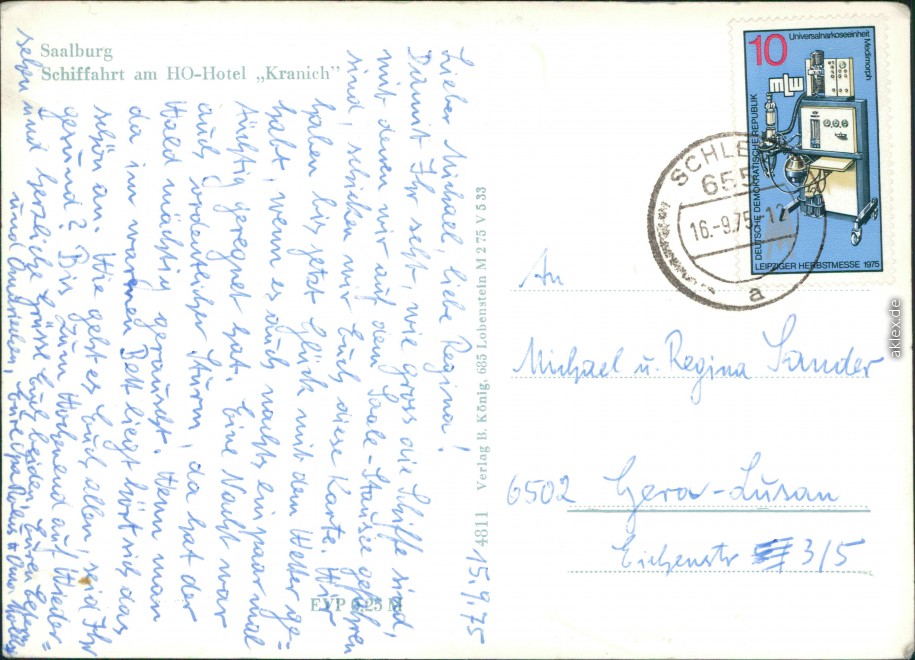 Saalburg
Schiffahrt am HO-Hotel „Kranich”
15.9.75
Lieber Michael, liebe Regina!
Damit Ihr seht wie gross die Schiffe sind,
mit denen wir auf dem Saale-Stausee gefahren
sind, schicken wir Euch diese Karte. Wir
haben bis jetzt Glück mit dem Wetter ge=
habt, wenn es auch nachts ein paarmal
tüchtig geregnet hat. Eine Nacht war
auch ordentlicher Sturm, da hat der
Wald mächtig gerauscht. Wenn man
da im warmen Bett liegt hört sich das
schön an. Wie geht es Euch allen, seid Ihr
gesund? Bis zum Wochenend auf Wieder=
sehen und herzliche Grüsse Euch beiden, Euren Eltern
und Omi
4811 Verlag B. König, 685 Lobenstein M 275 V 5 33
EVP 0,25 M
10
Universalnarkoseeinheit Medimorph
DEUTSCHE DEMOKRATISCHE REPUBLIK
LEIPZIGER HERBSTMESSE 1975
SCHLE
655
16.-9.75-12
a
An
Michael u. Regina Sander
6502 Gera-Lusan
Eichenstr 3/5
aklex.de